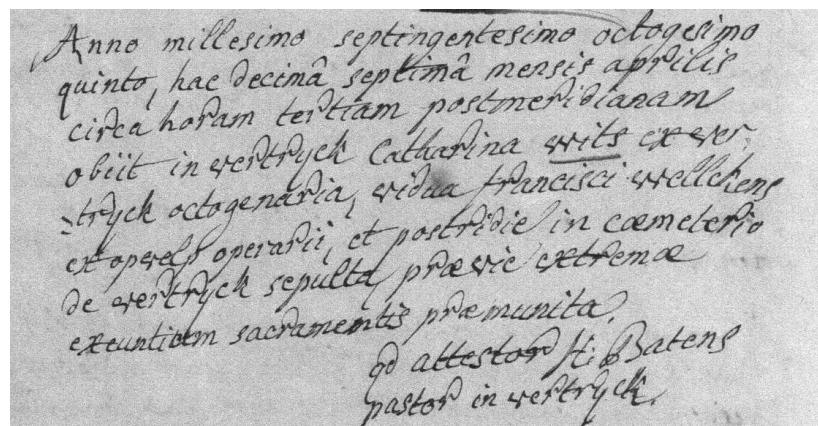 Anno millesimo septingentesimo octogesimo
quinto, hac decimâ septimâ mensis aprilis
circa horam tertiam postmeridianam
obiit in vertryck Catharina wits ex ver,
-tryck octogenaria, vidua francisci wellekens
ex opvelp operarii, et postridie in cœmeterio
de vertryck sepulta, prævie extremæ
exeuntium sacramentis præmunita.
qd attestor H: Batens
pastor in vertryck.